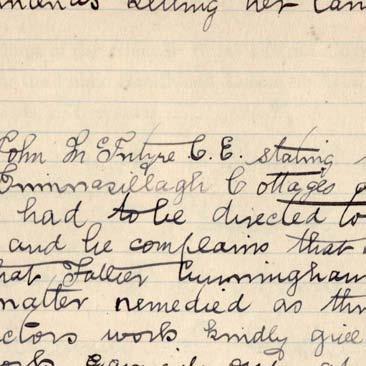 letting her
John McEntyre C.E. stating
Cottages
had to be directed to
and he complains that
that Father Cunningham
matter remedied as
ctors work kindly give